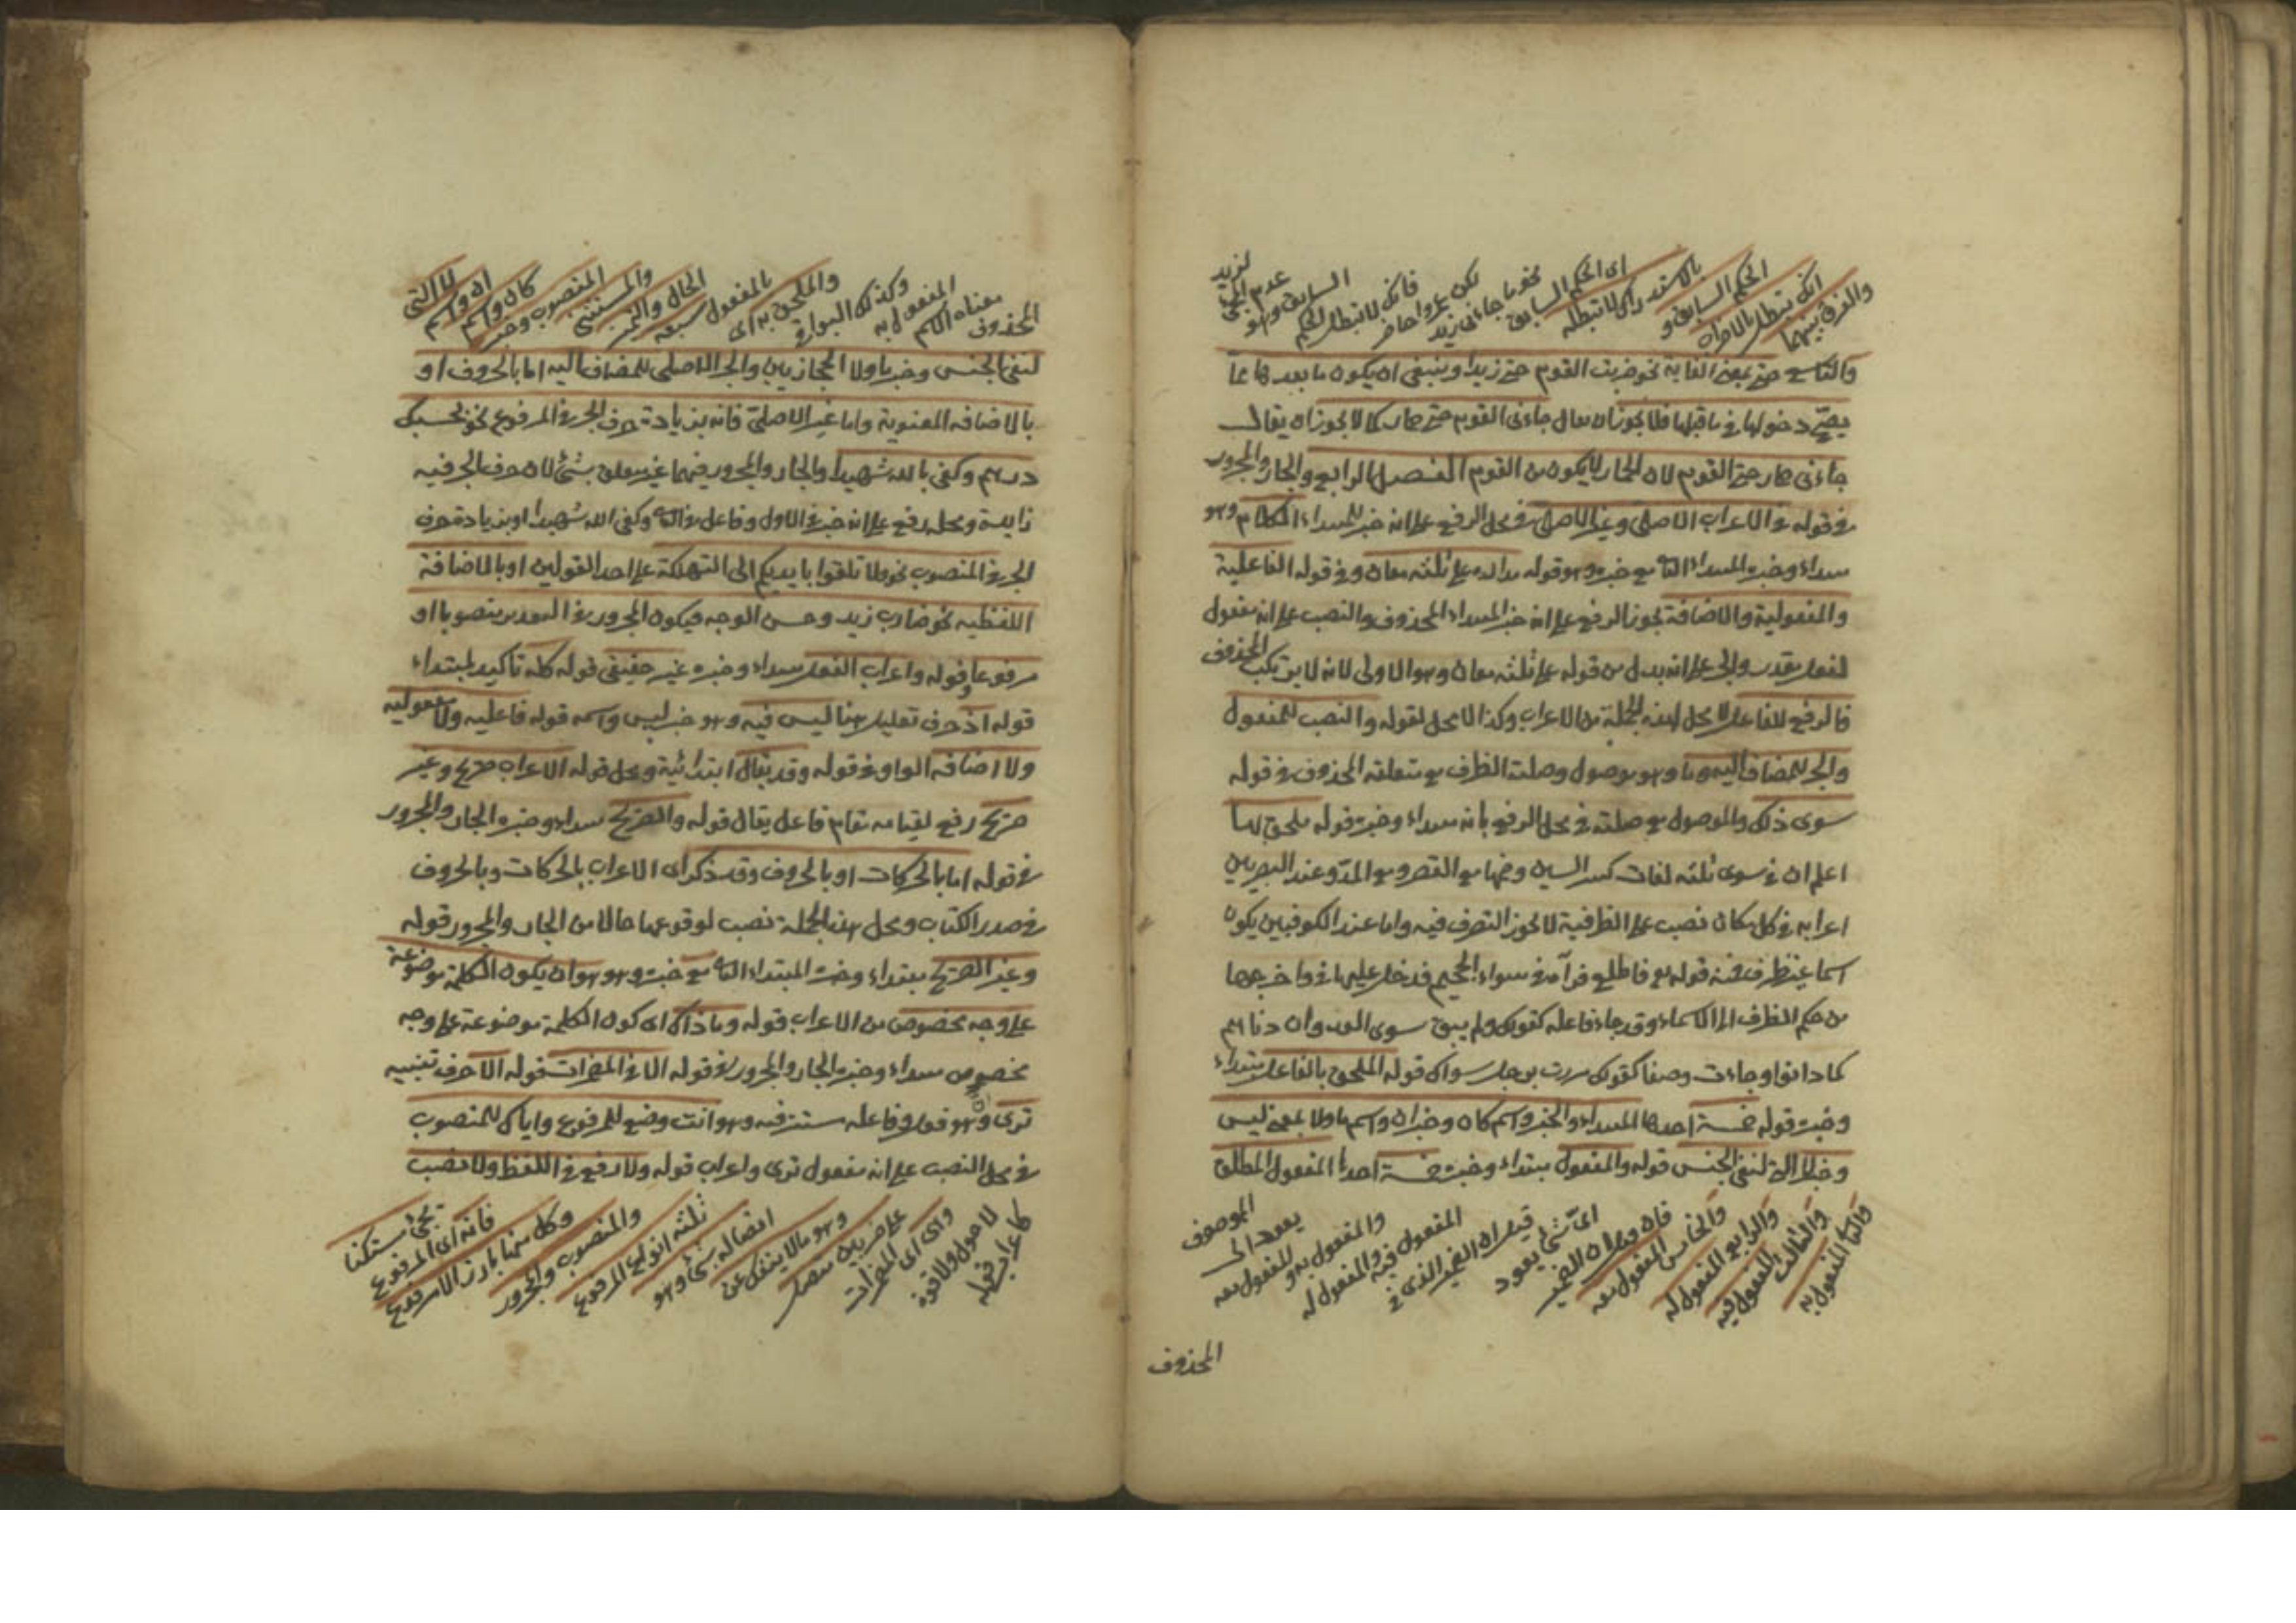 والفرق بينهما
انك تبطل بالاضراب
الحكم السابق و
بالاستدراك لا تبطله
اى الحكم السابق
نحو ما جاءنى زيد
لكن عمروا حاضر
فانك لا تبطل الحكم
السابق وهو
عدم المجئ
لزيد
والتاسع حتى بمعنى الغاية نحو ضربت القوم حتى زيدا وينبغى ان يكون ما بعدها مما
يصح دخولها فى ما قبلها فلا يجوز ان يقال جاءنى القوم حتى حمار كما لا يجوز ان يقال
جاءنى حمار حتى القوم لان الحمار لا يكون من القوم الفصل الرابع والجار والمجرور
فى قوله فى الاعراب الاصلى وغير الاصلى فى محل الرفع على انه خبر للمبتداء الكلام وهو
مبتداء وخبره المبتداء الثانى مع خبره وهو قوله مداره على ثلثه معان وفى قوله الفاعلية
والمفعولية والاضافة يجوز الرفع على انه خبر المبتداء المحذوف والنصب على انه مفعول
لفعل مقدر والجر على انه بدل من قوله على ثلثه معان وهو الاولى لانه لا يرتكب المحذوف
فالرفع للفاعل لا محل لهذه الجملة من الاعراب وكذا لا محل لقوله والنصب للمفعول
والجر للمضاف اليه وما وهو موصول وصلته الظرف مع متعلقه المحذوف فى قوله
سوى ذلك والموصول مع صلته فى محل الرفع بانه مبتداء وخبره قوله ملحق بها
اعلم ان فى سوى ثلثه لغات كسر السين وضمها مع القصر ومع المد وعند البصريين
اعرابه فى كل مكان نصب على الظرفية لا يجوز التصرف فيه واما عند الكوفيين يكون
اسما غير ظرف فمنه قوله تع فاطلع فرآه فى سواء الجحيم فدخل عليها فى واخرجها
من حكم الظرف الى الاسماء وقد جاء فاعله كقولك ولم يبق سوى العدوان دناهم
كما دانوا وجاءت وصفا كقولك مررت برجل سواك قوله الملحق بالفاعل مبتداء
وخبره قوله خمسة احدها المبتداء والخبر واسم كان وخبر ان واسم ما ولا بمعنى ليس
وخبر لا التى لنفى الجنس قوله والمفعول مبتداء وخبره خمسة احدها المفعول المطلق
والثانى المفعول به
والثالث المفعول فيه
والرابع المفعول له
والخامس المفعول معه
فان قيل ان الضمير
اى شئ يعود
قيل ان الضمير الذى فى
المفعول فيه والمفعول له
والمفعول به و
للمفعول معه
يعود الى
الموصوف
المحذوف
المحذوف
معناه الاسم
المفعول به
وكذلك البواقى
والملحق به اى
بالمفعول سبعة
الحال والتميز
والمستثنى
المنصوب وخبر
كان واسم
ان واسم
لا التى
لنفى الجنس وخبر ما ولا الحجازيين والجر الاصلى للمضاف اليه اما بالحروف او
بالاضافه المعنوية واما غير الاصلى فانه بزيادة حرف الجر فى المرفوع نحو بحسبك
درهم وكفى بالله شهيدا والجار والمجرور فيهما غير متعلق بشئ لان حرف الجر فيه
زايدة ومحله رفع على انه خبر فى الاول وفاعل فى الثانى وكفى الله شهيدا او بزيادة حرف
الجر فى المنصوب نحو ولا تلقوا بايديكم الى التهلكة على احد القولين او بالاضافة
اللفظيه نحو ضارب زيد وحسن الوجه فيكون المجرور فى التقدير منصوبا او
مرفوعا وقوله واعراب الفعل مبتداء وخبره غير حقيقى قوله كله تأكيد لمبتداء
قوله اذ حرف تعليل هنا ليس فيه وهو خبر ليس واسمه قوله فاعليه ولا مفعوليه
ولا اضافه الواو فى قوله وقد يقال ابتدائية ومحل قوله الاعراب صريح وغير
صريح رفع لقيامه مقام فاعل يقال قوله والصريح مبتداء وخبره الجار والمجرور
فى قوله اما بالحركات او بالحروف وقد ذكر اى الاعراب بالحركات وبالحروف
فى صدر الكتاب ومحل هذه الجملة نصب لوقوعها حالا من الجار والمجرور قوله
وغير الصريح مبتداء وخبره المبتداء الثانى مع خبره وهو هو ان يكون الكلمة موضوعة
على وجه مخصوص من الاعراب قوله وما ذاك اى كون الكلمة موضوعة على وجه
مخصوص مبتداء وخبره الجار والمجرور فى قوله الا فى المضمرات قوله الا حرف تنبيه
ترى وهو فعل وفاعله مستتر فيه وهو انت وضع للمرفوع واياك للمنصوب
فى محل النصب على انه مفعول ترى واعراب قوله ولا رفع فى اللفظ ولا نصب
كاعراب قوله
لا حول ولا قوة
واى اى المضمرات
على ضربين متصل
وهو ما لا ينفك عن
اتصاله بشئ وهو
ثلثه انواع المرفوع
والمنصوب والمجرور
وكل منها بارز الا المرفوع
فانه اى المرفوع
يجئ مستكنا